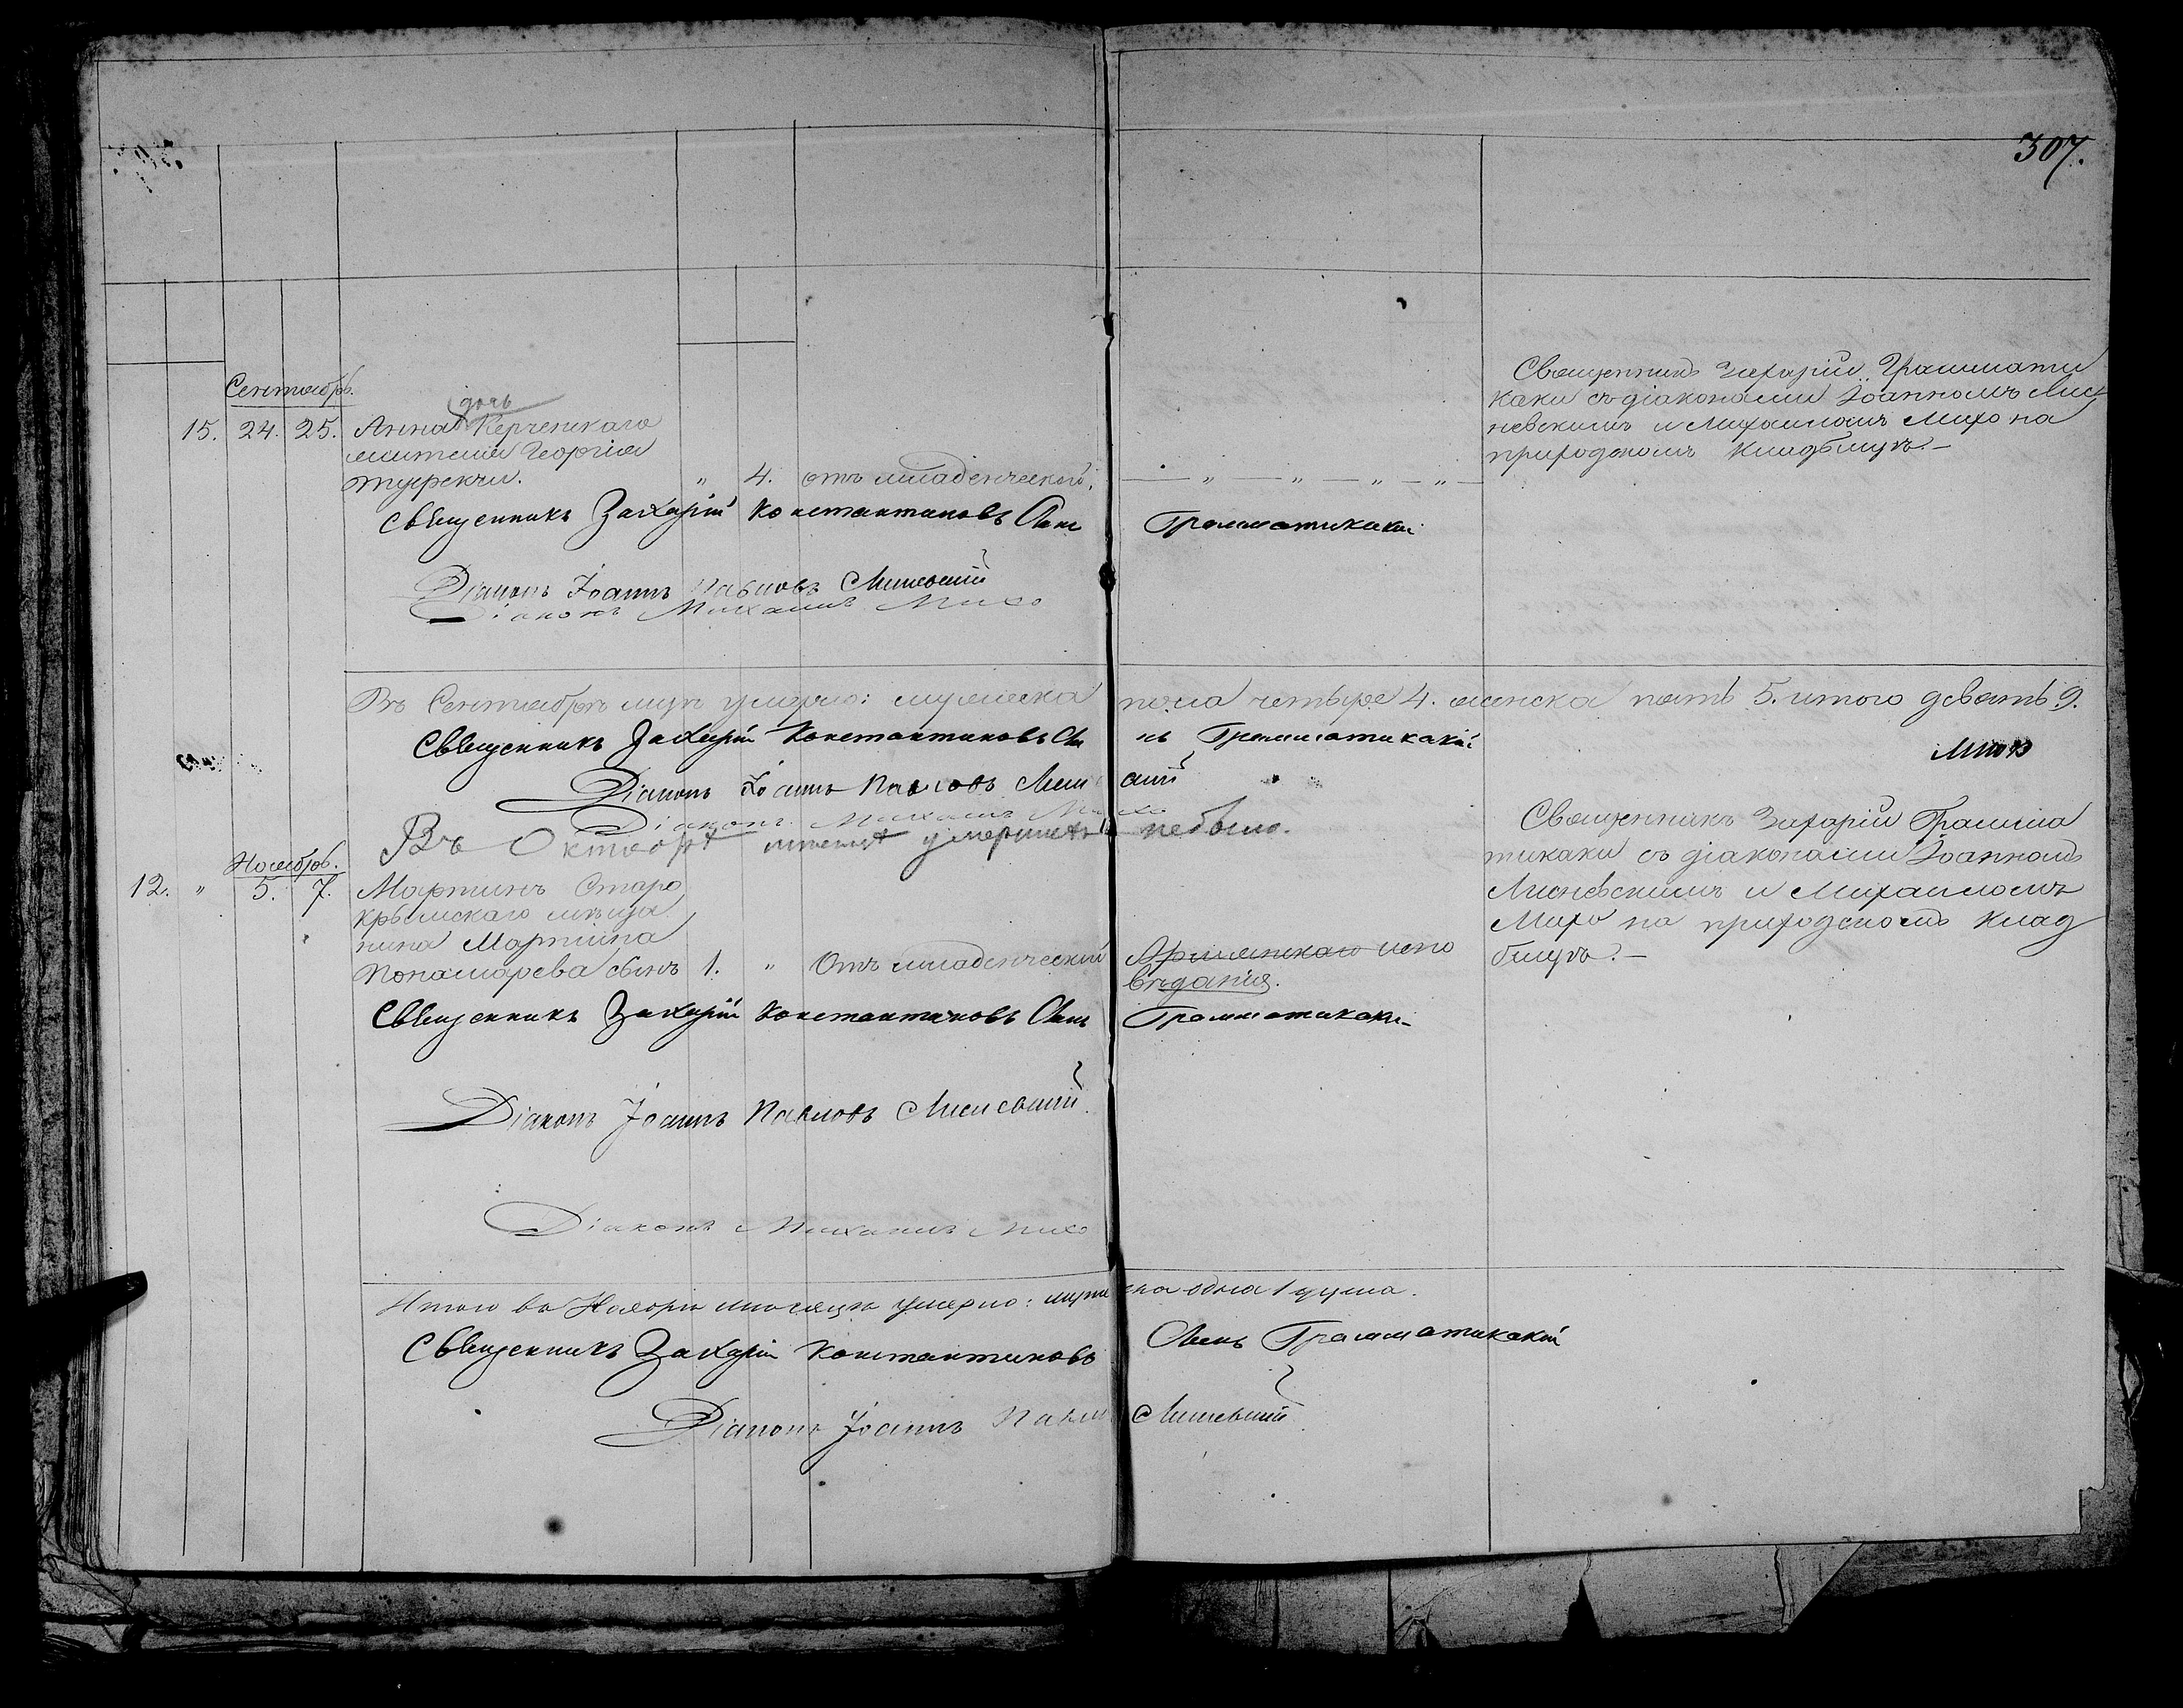 307.
Сентябрь.
дочь
15. 24. 25. Анна Керченскаго
жителя Георгія
" 4. отъ младенческой.
— " — " — " — " —
Священникъ Захарій Граммати
каки съ діаконами Іоанномъ Лис
невскимъ и Михаиломъ Михо на
приходскомъ кладбищѣ. —
Священникъ Захарій Константиновъ Грамматикаки
Діаконъ Іоаннъ Павловъ
Діаконъ Михаилъ Михо
Въ Сентябрѣ умерло: мужеска пола четыре 4. женска пять 5. итого девять 9.
Священникъ Захарій Константиновъ Грамматикакій
Діаконъ Іоаннъ Павловъ
Діаконъ Михаилъ Михо
Въ Октябрѣ умершихъ небыло.
Ноябрь.
12. " 5. 7. Мартинъ Старо
крымскаго мѣща
нина Мартина
Понамарева сынъ 1. " Отъ младенческій
Армянскаго испо
вѣданія.
Священникъ Захарій Грамма
тикаки съ діаконами Іоанномъ
Лисневскимъ и Михаиломъ
Михо на приходскомъ клад
бищѣ. —
Священникъ Захарій Константиновъ Грамматикаки
Діаконъ Іоаннъ Павловъ
Діаконъ Михаилъ Михо
Итого въ Ноябрѣ мѣсяцѣ умерло: мужеска одна 1 душа.
Священникъ Захарій Константиновъ Грамматикакій
Діаконъ Іоаннъ